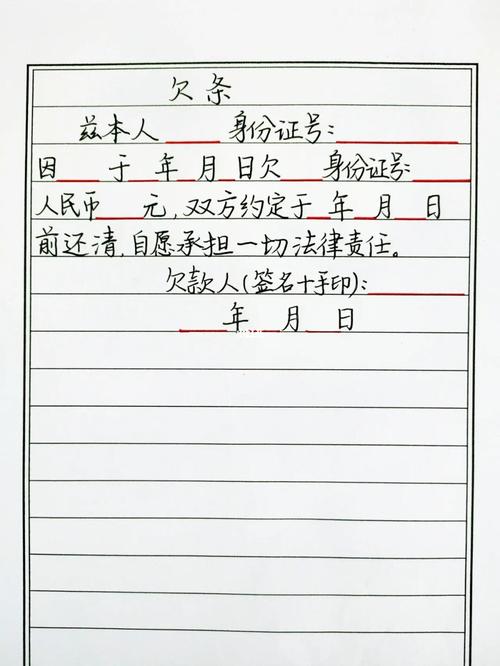 欠条
兹本人____身份证号:________
因____于__年__月__日欠____身份证号:____
人民币____元,双方约定于__年__月__日
前还清,自愿承担一切法律责任。
欠款人(签名+手印):________
____年__月__日